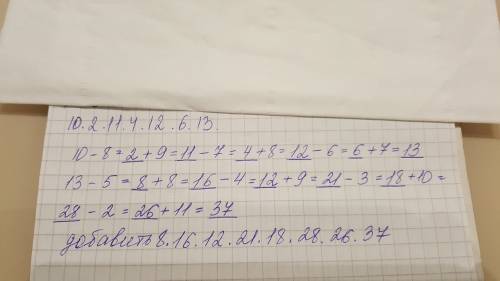 10.2.11.4.12.6.13.
10-8=2+9=11-7=4+8=12-6=6+7=13
13-5=8+8=16-4=12+9=21-3=18+10=
28-2=26+11=37
добавить 8.16.12.21.18.28.26.37